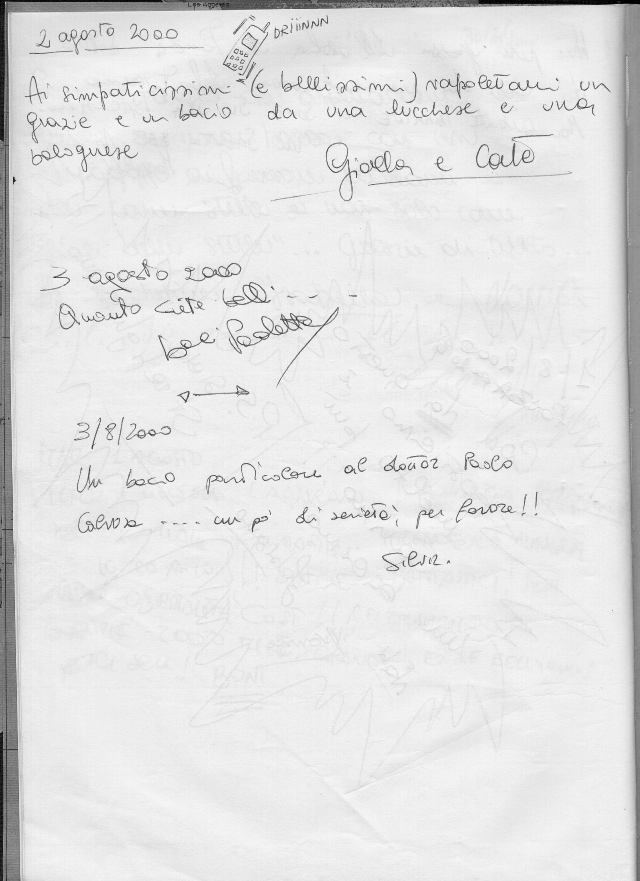 2 agosto 2000
DRIIINNN
Ai simpaticissimi (e bellissimi) napoletani un
grazie e un bacio da una lucchese e una
bolognese
Giada e Catè
3 agosto 2000
Quanto siete belli....
baci Paoletta
3/8/2000
Un bacio particolare al dottor Paolo
.... un po' di serietà, per favore!!
Silvia.